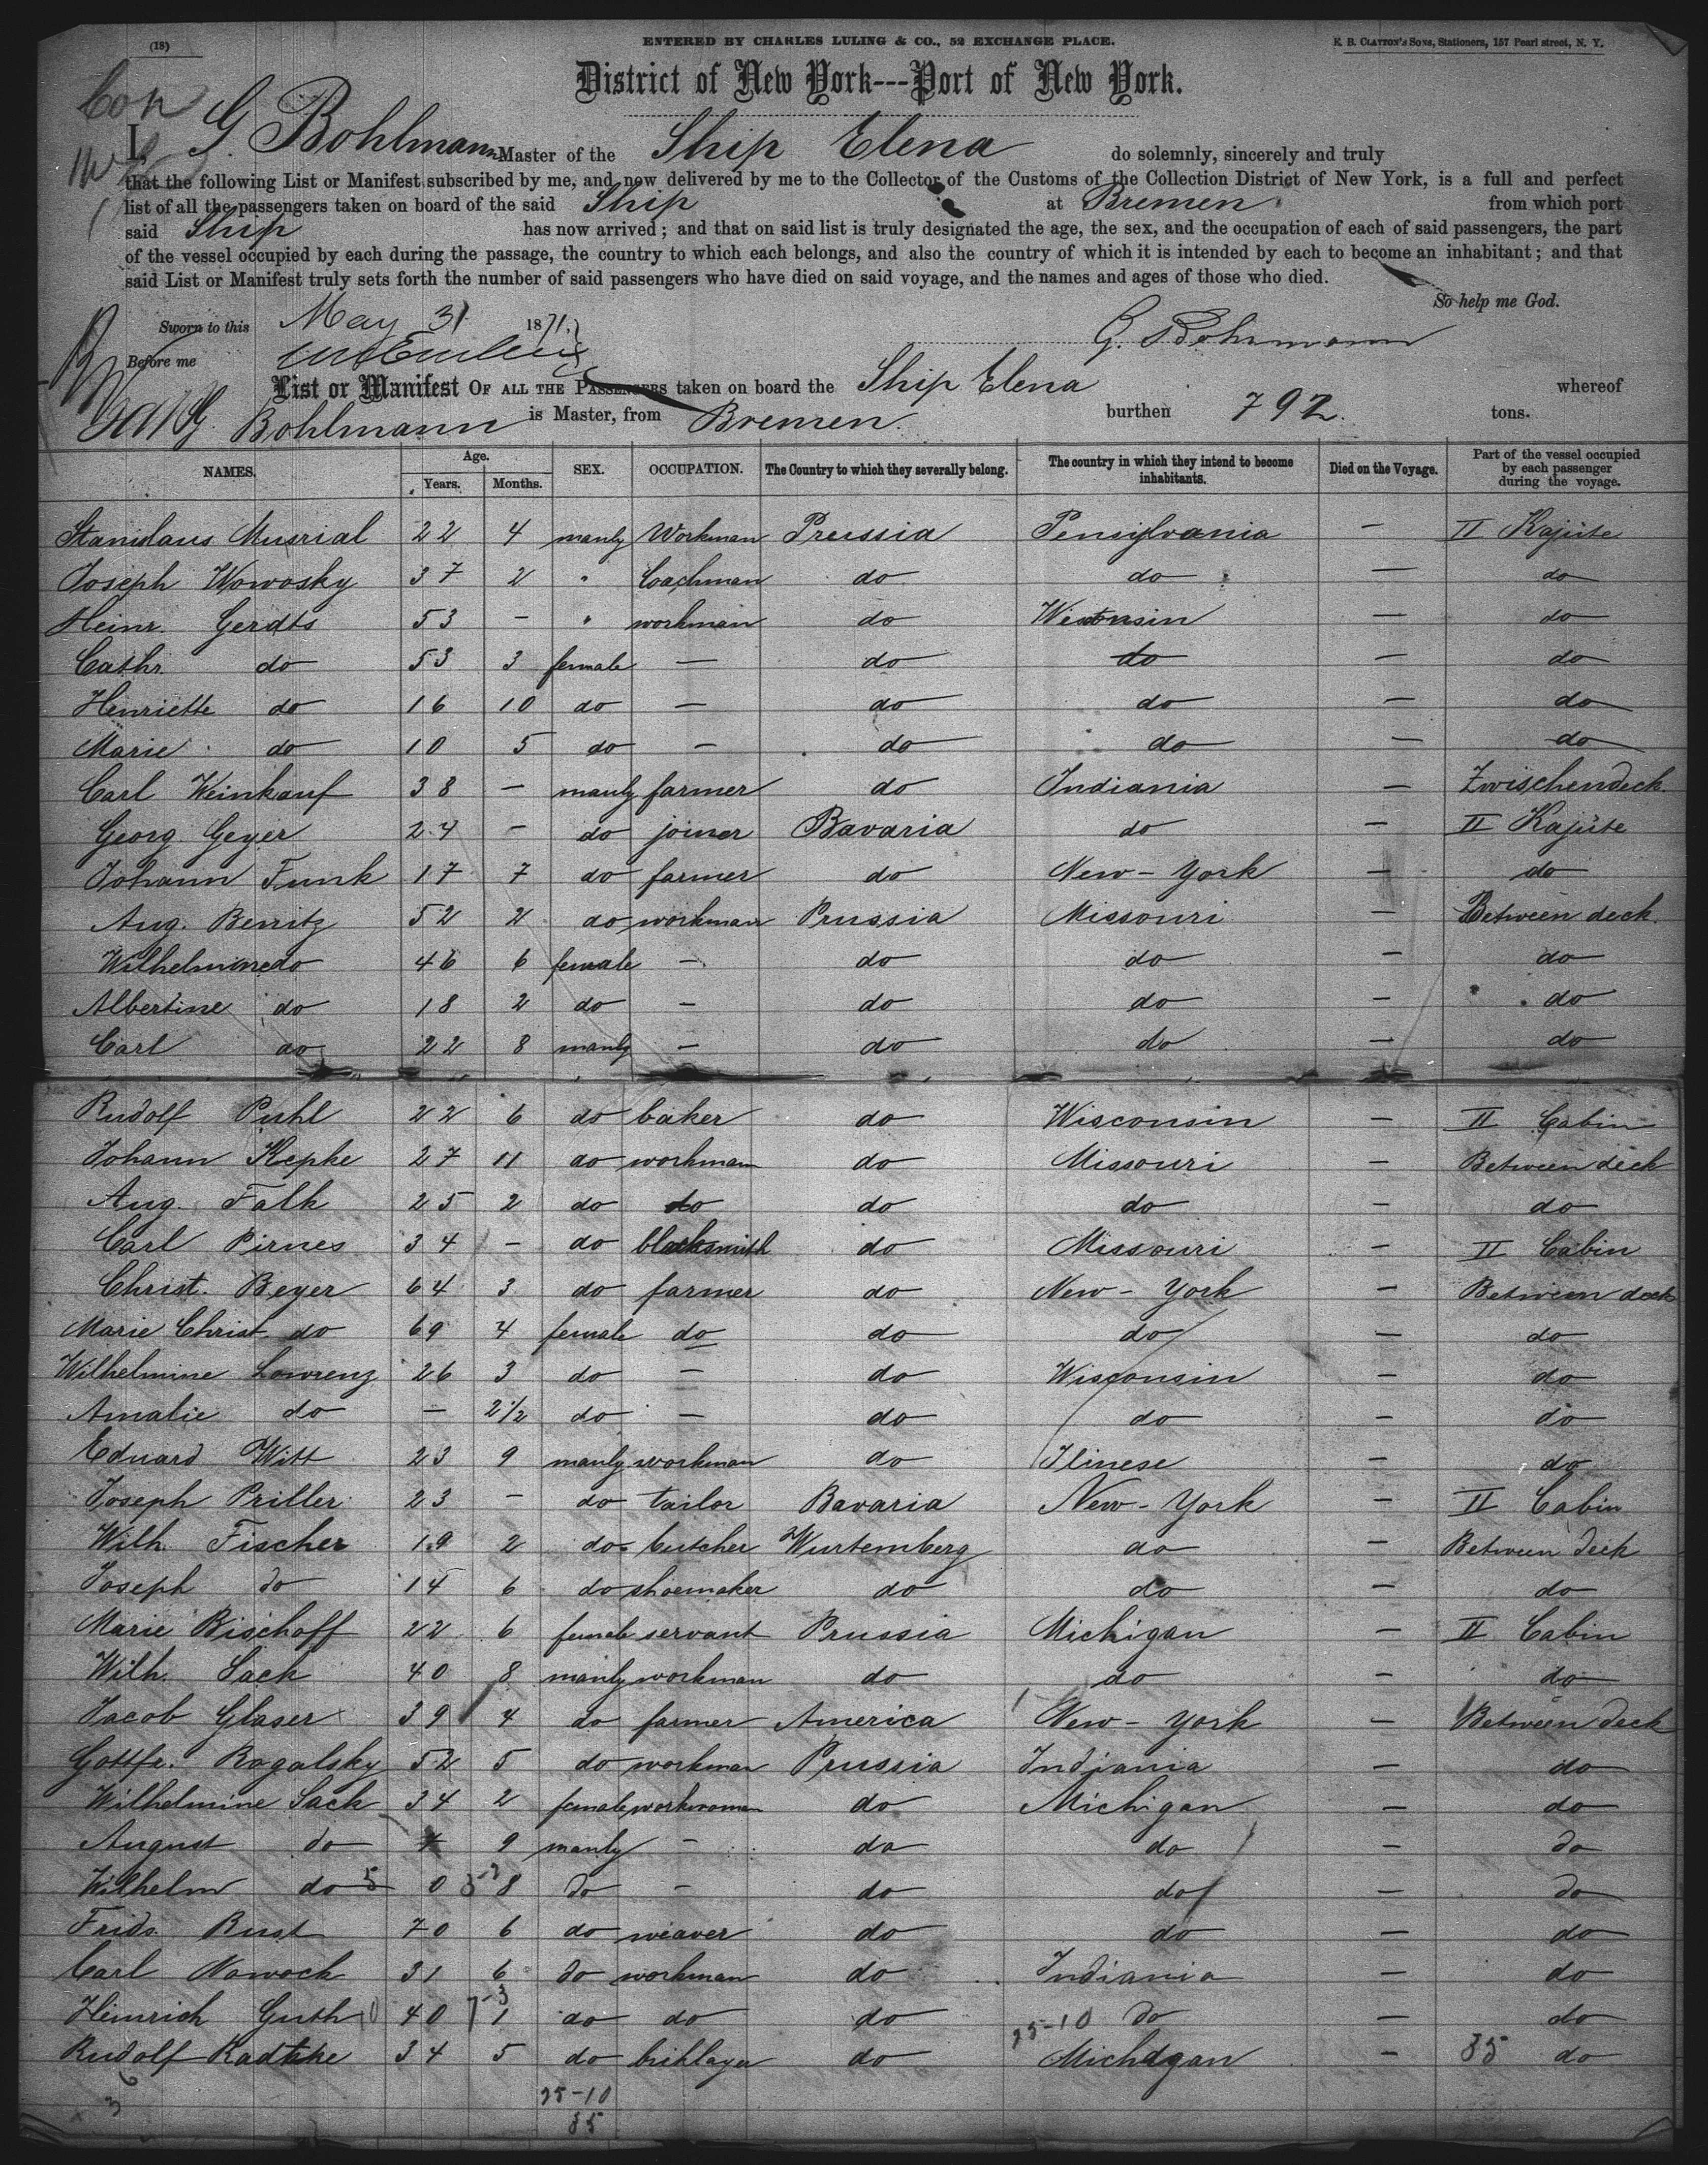 (18)
ENTERED BY CHARLES LULING & CO., 52 EXCHANGE PLACE.
E. B. CLAYTON'S SONS, Stationers, 157 Pearl street, N. Y.
District of New York---Port of New York.
I, G. Bohlmann Master of the Ship Elena do solemnly, sincerely and truly
that the following List or Manifest subscribed by me, and now delivered by me to the Collector of the Customs of the Collection District of New York, is a full and perfect
list of all the passengers taken on board of the said Ship at Bremen from which port
said Ship has now arrived; and that on said list is truly designated the age, the sex, and the occupation of each of said passengers, the part
of the vessel occupied by each during the passage, the country to which each belongs, and also the country of which it is intended by each to become an inhabitant; and that
said List or Manifest truly sets forth the number of said passengers who have died on said voyage, and the names and ages of those who died.
So help me God.
Sworn to this May 31 1871. G. Bohlmann
Before me
List or Manifest OF ALL THE PASSENGERS taken on board the Ship Elena whereof
G. Bohlmann is Master, from Bremen. burthen 792. tons.
NAMES. Age. Years. Months. SEX. OCCUPATION. The Country to which they severally belong. The country in which they intend to become inhabitants. Died on the Voyage. Part of the vessel occupied by each passenger during the voyage.
Stanislaus Musrial 22 4 manly Workman Preussia Pensylvania — II Kajüte
Joseph Wowosky 37 2 " Coachman do do — do
Heinr. Gerdts 53 — " workman do Wisconsin — do
Cathr. do 53 3 female — do do — do
Henriette do 16 10 do — do do — do
Marie do 10 5 do — do do — do
Carl Weinkauf 38 — manly farmer do Indiania — Zwischendeck.
Georg Geyer 24 — do joiner Bavaria do — II Kajüte
Johann Funk 17 7 do farmer do New-York — do
Aug. Berritz 52 2 do workman Prussia Missouri — Between deck.
Wilhelmine do 46 6 female — do do — do
Albertine do 18 2 do — do do — do
Carl do 22 8 manly — do do — do
Rudolf Puhl 22 6 do baker do Wisconsin — II Cabin
Johann Kepke 27 11 do workman do Missouri — Between deck
Aug. Falk 25 2 do do do do — do
Carl Pirnes 34 — do blacksmith do Missouri — II Cabin
Christ. Beyer 64 3 do farmer do New-York — Between deck
Marie Christ. do 69 4 female do do do — do
Wilhelmine Lowrenz 26 3 do — do Wisconsin — do
Amalie do — 2 1/2 do — do do — do
Eduard Witt 23 9 manly workman do Ilinese — do
Joseph Priller 23 — do tailor Bavaria New-York — II Cabin
Wilh. Fischer 19 2 do butcher Wurtemberg do — Between deck
Joseph do 14 6 do shoemaker do do — do
Marie Bischoff 22 6 female servant Prussia Michigan — II Cabin
Wilh. Sack 40 8 manly workman do do — do
Jacob Glaser 39 4 do farmer America New-York — Between deck
Gottfr. Rogalsky 52 5 do workman Prussia Indiania — do
Wilhelmine Sack 34 2 female workwoman do Michigan — do
August do 9 manly — do do — do
Wilhelm do 0 8 do — do do — do
Frids. Bust 70 6 do weaver do do — do
Carl Nowock 31 6 do workman do Indiania — do
Heinrich Guth 40 1 do do do do — do
Rudolf Radtke 34 5 do briklayer do 25-10 Michigan — 35 do
25-10
35